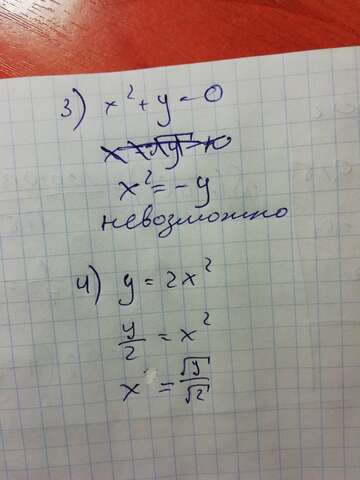 3) x² + y = 0
x² = -y
невозможно
4) y = 2x²
y/2 = x²
x = √y/√2